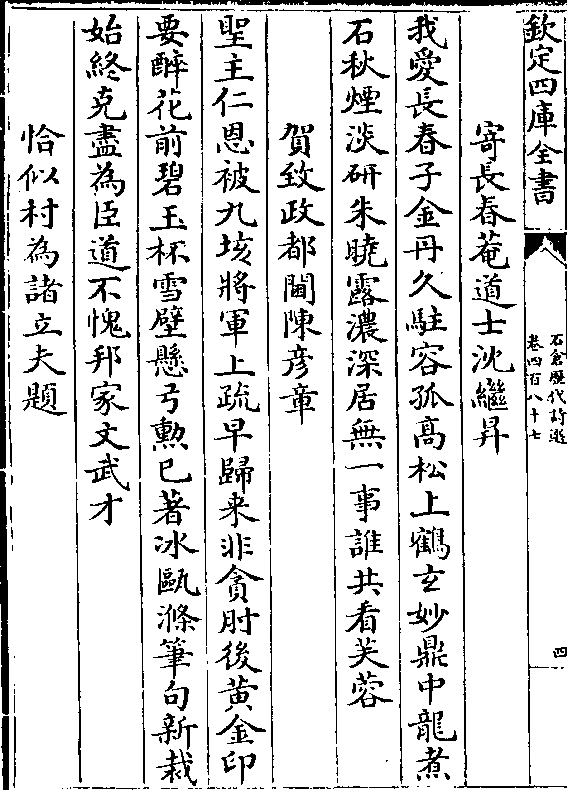 欽定四庫全書
石倉歷代詩選
卷四百八十七
四
寄長春菴道士沈繼昇
我愛長春子金丹久駐容孤高松上鶴玄妙鼎中龍煮
石秋煙淡研朱曉露濃深居無一事誰共看芙蓉
賀致政都閫陳彦章
聖主仁恩被九垓將軍上疏早歸来非貪肘後黄金印
要醉花前碧玉杯雪壁懸弓勲已著冰甌滌筆句新裁
始終克盡為臣道不愧邦家文武才
恰似村為諸立夫題